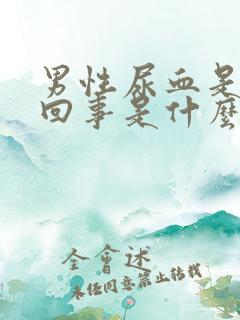 男性尿血是
回事是什麼
仝會述
未经同意禁止转载